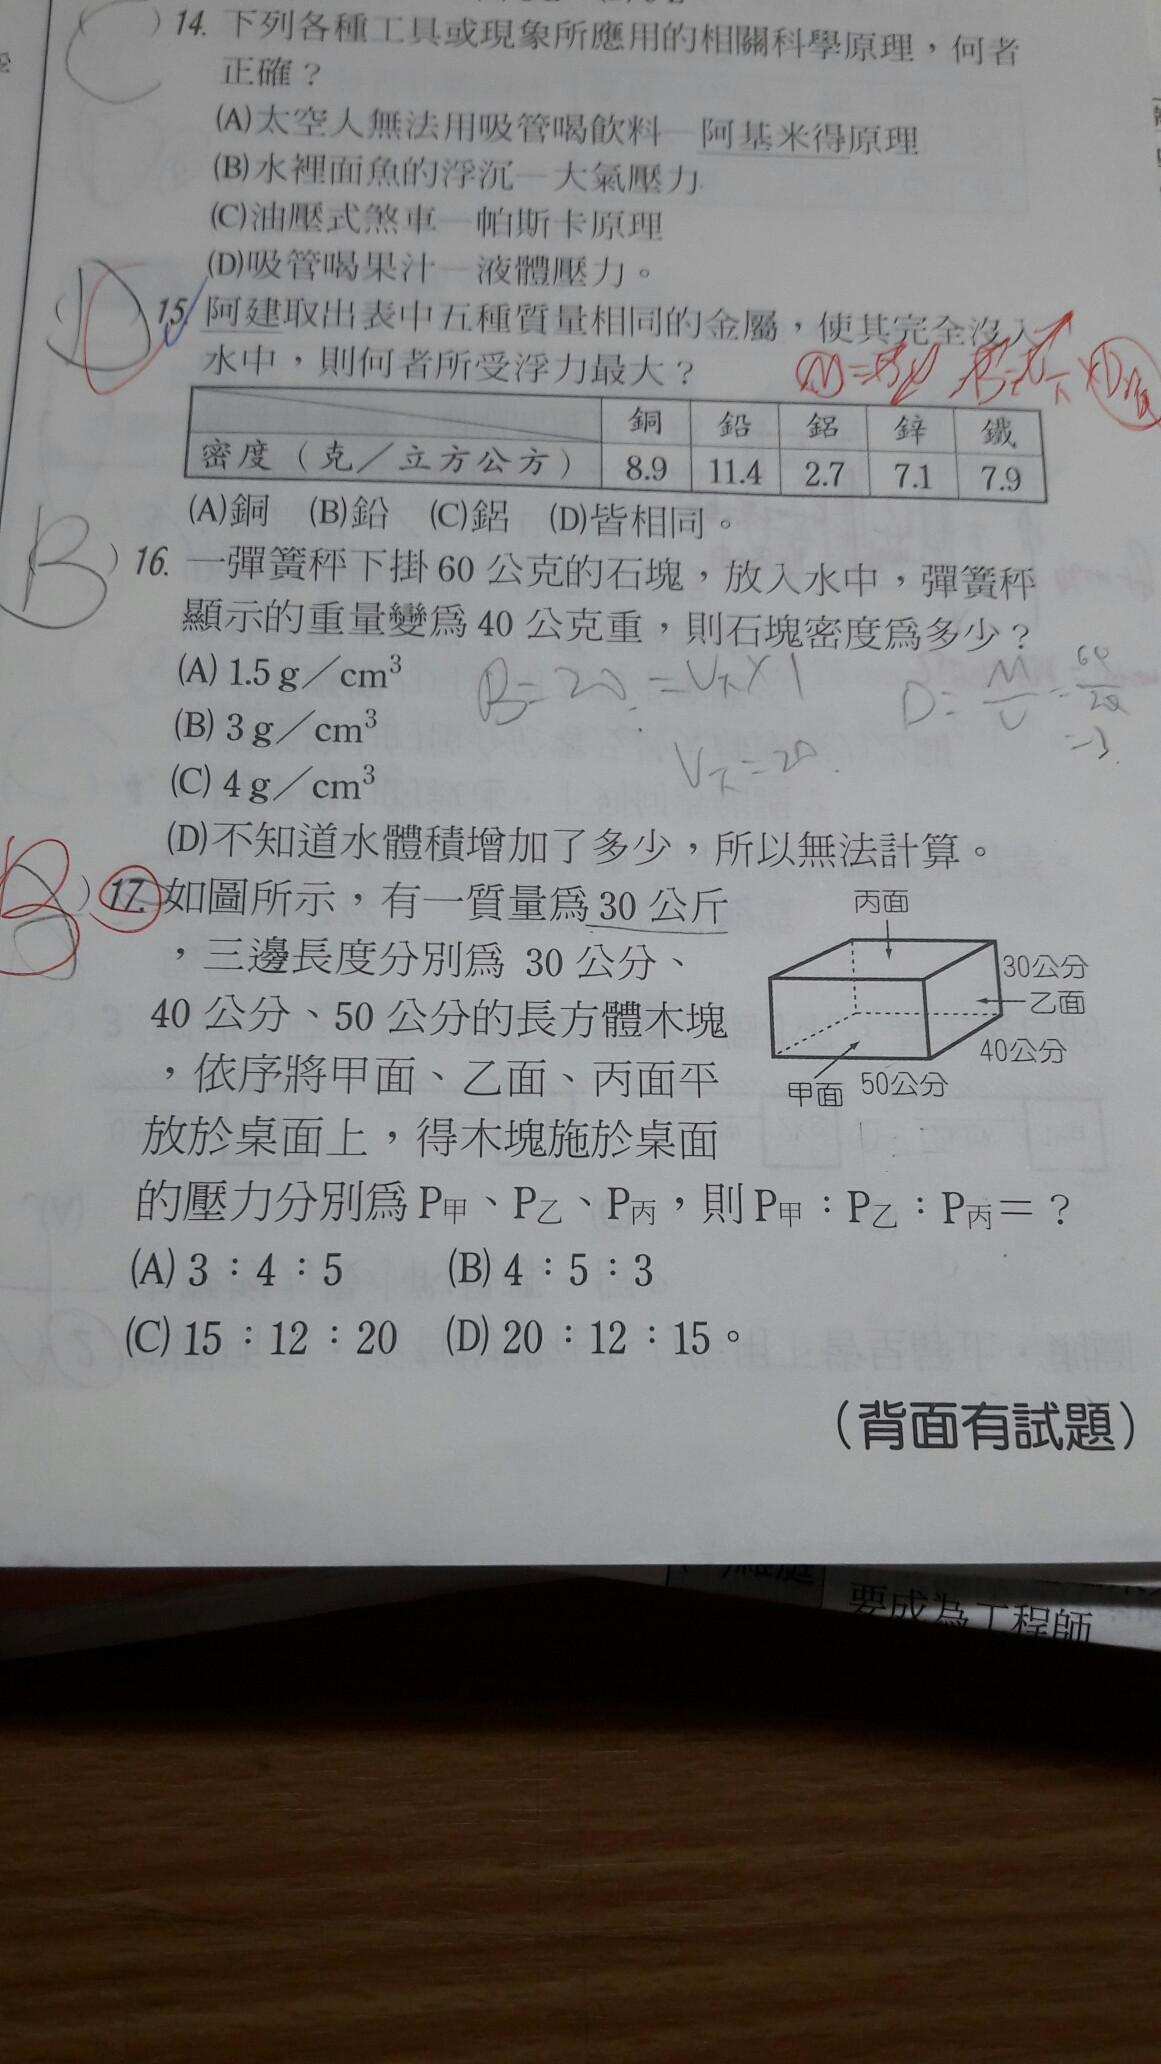 C ) 14. 下列各種工具或現象所應用的相關科學原理，何者
正確？
(A)太空人無法用吸管喝飲料—阿基米得原理
(B)水裡面魚的浮沉—大氣壓力
(C)油壓式煞車—帕斯卡原理
(D)吸管喝果汁—液體壓力。
D 15. 阿建取出表中五種質量相同的金屬，使其完全沒入
水中，則何者所受浮力最大？
銅 鉛 鋁 鋅 鐵
密度（克／立方公方） 8.9 11.4 2.7 7.1 7.9
(A)銅 (B)鉛 (C)鋁 (D)皆相同。
B ) 16. 一彈簧秤下掛 60 公克的石塊，放入水中，彈簧秤
顯示的重量變為 40 公克重，則石塊密度為多少？
(A) 1.5 g／cm³
B=20=V下×1
D=M/V=60/20
=3
(B) 3 g／cm³
V下=20
(C) 4 g／cm³
(D)不知道水體積增加了多少，所以無法計算。
B ) 17. 如圖所示，有一質量為 30 公斤
，三邊長度分別為 30 公分、
40 公分、50 公分的長方體木塊
，依序將甲面、乙面、丙面平
放於桌面上，得木塊施於桌面
的壓力分別為 P甲、P乙、P丙，則 P甲：P乙：P丙＝？
丙面
30公分
乙面
40公分
甲面 50公分
(A) 3：4：5 (B) 4：5：3
(C) 15：12：20 (D) 20：12：15。
（背面有試題）
要成為工程師